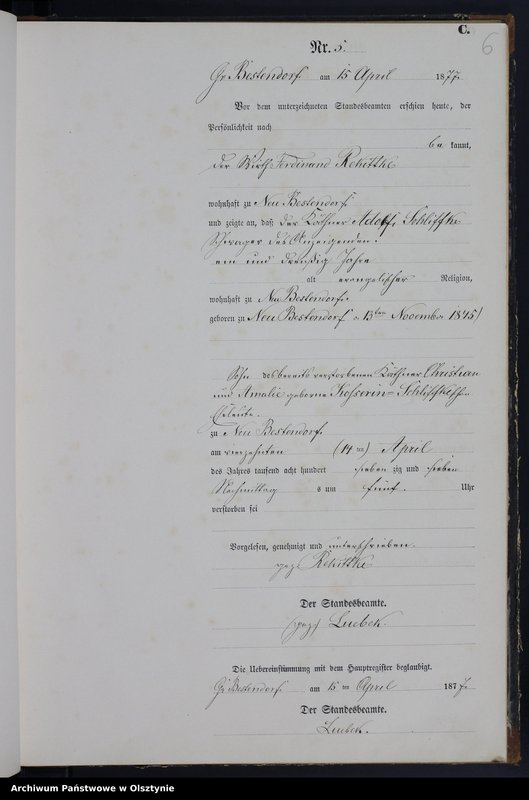 C.
6
Nr. 5.
Gr. Bestendorf am 15 April 1877.
Vor dem unterzeichneten Standesbeamten erschien heute, der
Persönlichkeit nach
be kannt,
der Wirth Ferdinand Rekittke
wohnhaft zu Neu Bestendorf
und zeigte an, daß der Käthner Adolf Schliffke
Schwager des Anzeigenden.
ein und dreußig Jahre
alt evangelischer Religion,
wohnhaft zu Neu Bestendorf
geboren zu Neu Bestendorf 13ten November 1845)
Sohn des bereits verstorbenen Käthner Christian
und Amalie geborne Schliffkeschen
Eheleute.
zu Neu Bestendorf
am vierzehnten (14 ten) April
des Jahres tausend acht hundert sieben zig und sieben
Nachmittag s um fünf. Uhr
verstorben sei
Vorgelesen, genehmigt und unterschrieben.
gez Rekittke
Der Standesbeamte.
(gez) Luebck.
Die Uebereinstimmung mit dem Hauptregister beglaubigt.
Gr. Bestendorf. am 15 ten April 1877.
Der Standesbeamte.
Luebck.
Archiwum Państwowe w Olsztynie